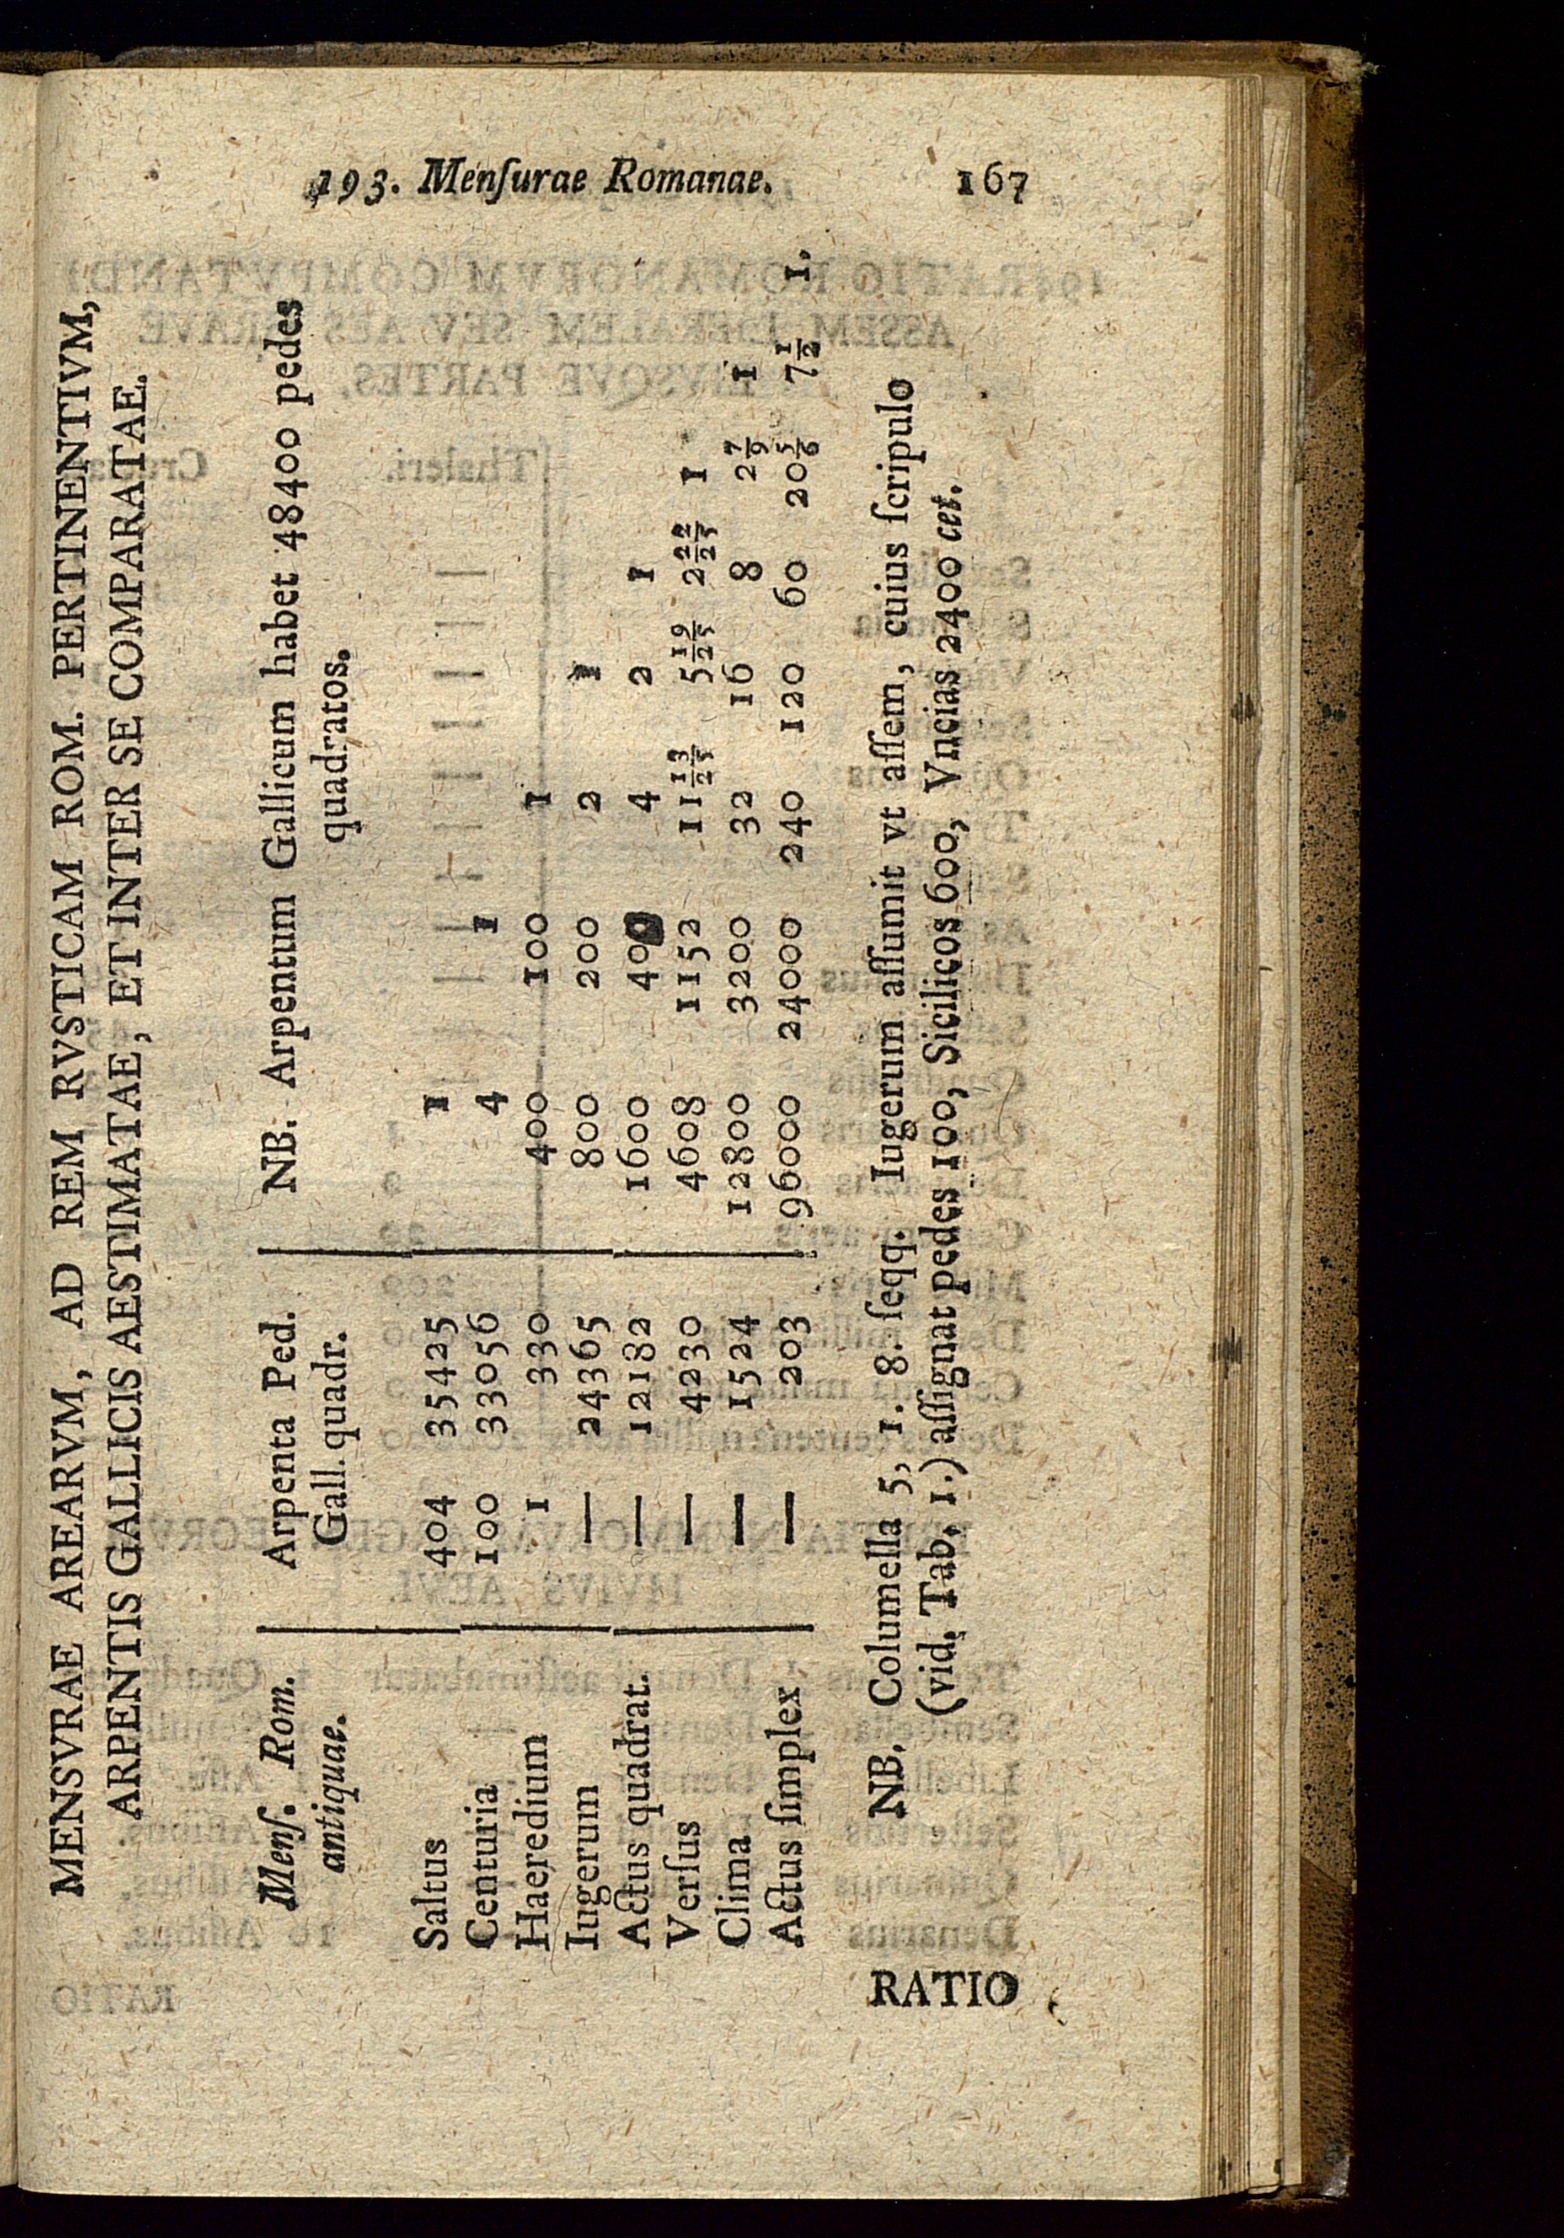 193. Menſurae Romanae. 167
MENSVRAE AREARVM, AD REM RVSTICAM ROM. PERTINENTIVM,
ARPENTIS GALLICIS AESTIMATAE, ET INTER SE COMPARATAE.
Menſ. Rom. Arpenta Ped. NB. Arpentum Gallicum habet 48400 pedes
antiquae. Gall. quadr. quadratos.
Saltus 404 35425 1
Centuria 100 33056 4 1
Haeredium 1 330 400 100 1
Iugerum — 24365 800 200 2 1
Actus quadrat. — 12182 1600 400 4 2 1
Verſus — 4230 4608 1152 11 13/25 5 19/25 2 22/25 1
Clima — 1524 12800 3200 32 16 8 2 7/9 1
Actus ſimplex — 203 96000 24000 240 120 60 20 5/6 7 1/2 1.
NB. Columella 5, 1. 8. ſeqq. Iugerum aſſumit vt aſſem, cuius ſcripulo
(vid. Tab. 1.) aſſignat pedes 100, Sicilicos 600, Vncias 2400 cet.
RATIO